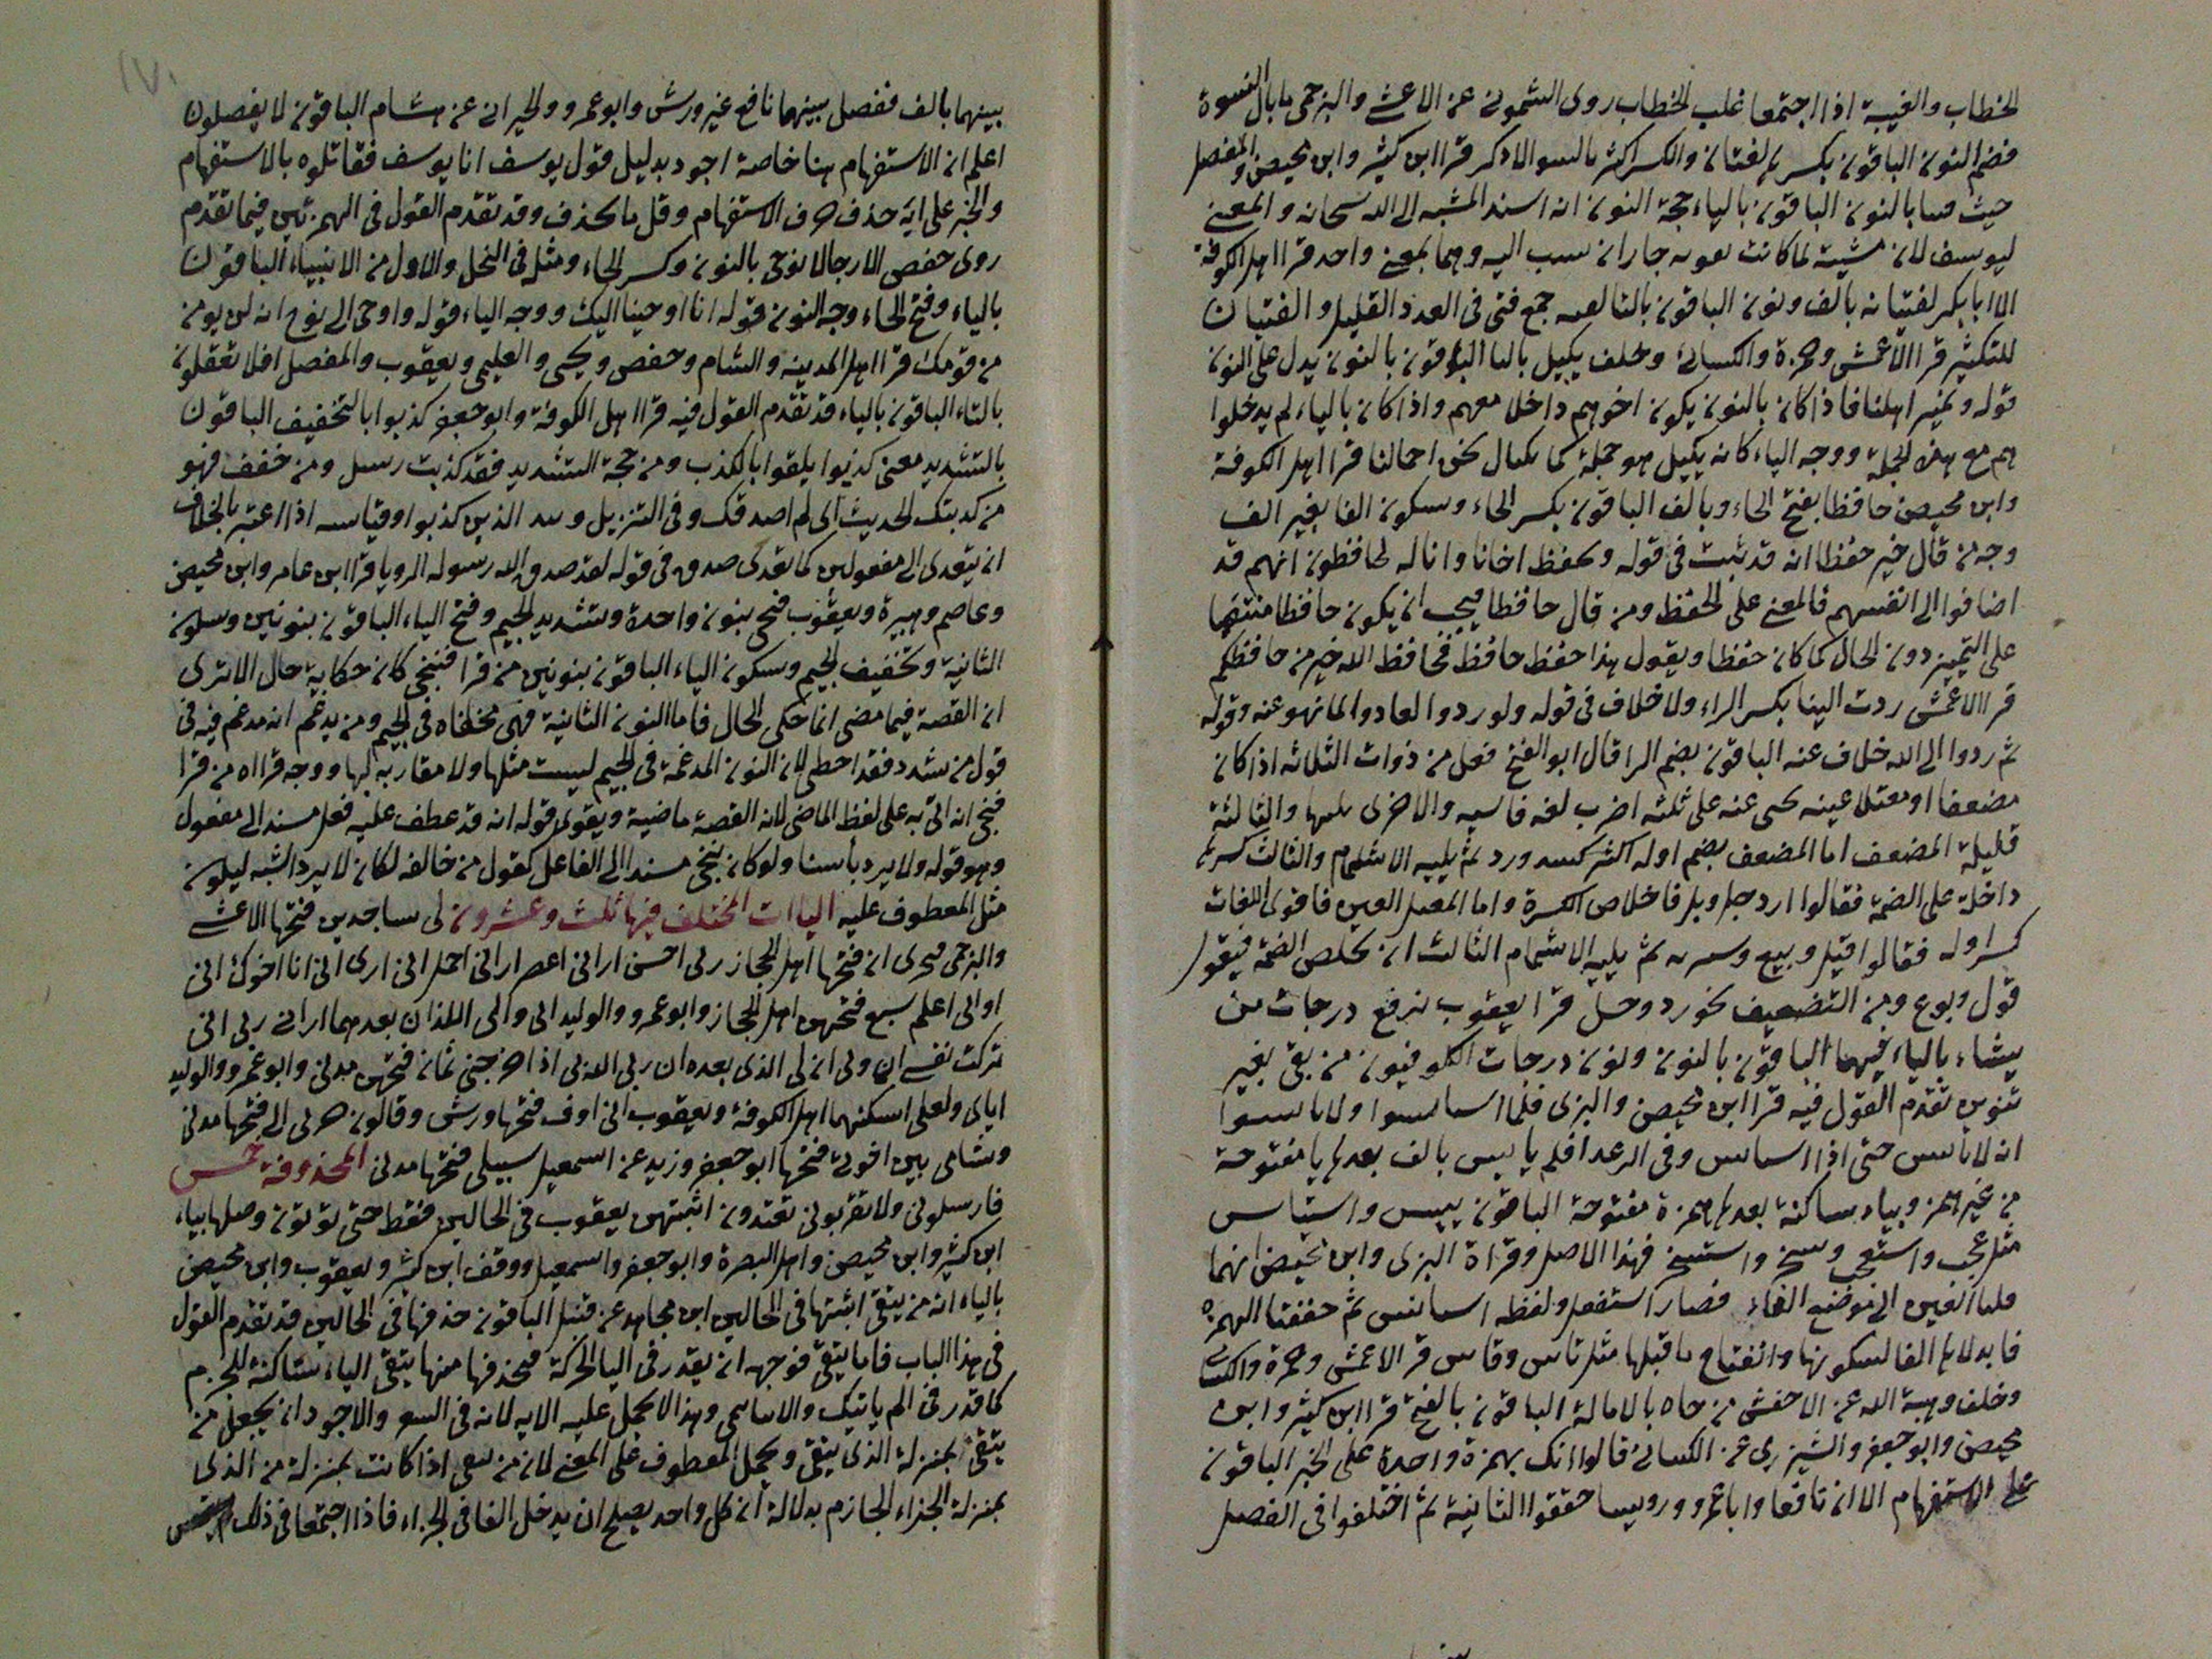 الخطاب والغيبة اذا اجتمعا غلب الخطاب روى الشموني عن الاعشى والبرجمي ما بال النسوة
فضم النون الباقون بكسرها لغتان والكسر اكثر بالسو الا ذكر قرا ابن كثير وابن محيصن والمفضل
حيث نشا بالنون الباقون بالياء حجة النون انه اسند المشية الى الله سبحانه والمعنى
ليوسف لان مشيته لما كانت جاز ان ينسب اليه وهما بمعنى واحد قرا اهل الكوفة
الا ابا بكر لفتيانه بالف ونون الباقون بالتا جمع فتى في العدد القليل والفتيان
للتكثير قرا الاعمش وحمزة والكسائي وخلف يكتل باليا الباقون بالنون يدل على النون
قوله ونمير اهلنا فاذا كان بالنون يكون اخوهم داخلا معهم واذا كان بالياء لم يدخلوا
هم مع هذه الجملة ووجه الياء كانه يكتل هو حمله كما نكتال نحن احمالنا قرا اهل الكوفة
وابن محيصن حافظا بفتح الحاء وبالف الباقون بكسر الحاء وسكون الفا بغير الف
وجه من قال خير حفظا انه قد ثبت في قوله ونحفظ اخانا وانا له لحافظون انهم قد
اضافوا الى انفسهم فالمعنى على الحفظ ومن قال حافظا فيجب ان يكون حافظا منتصبا
على التمييز دون الحال كما كان حفظا ويقول هذا حفظ حافظ فحافظ الله خير من حافظكم
قرا الاعمش ردت الينا بكسر الراء ولا خلاف في قوله ولو ردوا لعادوا لما نهوا عنه وقوله
ثم ردوا الى الله خلاف عنه الباقون بضم الرا قال ابو الفتح فعل من ذوات الثلاثه اذا كان
مضعفا او معتلا عينه يجي عنه على ثلثه اضرب لغه فاشيه والاخرى تليها والثالثة
قليلة المضعف اما المضعف بضم اوله اكثر كشد ورد ثم يليه الاشمام والثالث كسرها
داخلة على الضمة فقالوا ارد حل وبل فاخلاص الكسرة واما المعتل العين فاقوى اللغات
كسر اوله فقالوا قيل وبيع ثم يليه الاشمام الثالث ان تخلص الضمة فيقول
قول وبوع ومن التضعيف نحو رد وحل قرا يعقوب نرفع درجات من
يشاء بالياء فيهما الباقون بالنون ونون درجات الكوفيون من بقى بغير
تنوين تقدم القول فيه قرا ابن محيصن والبزى فلما استايسوا ولا تايسوا
انه لا يايس حتى اذا استايس وفى الرعد افلم يايس بالف بعدها يا مفتوحة
من غير همز وبياء ساكنة بعدها همزة مفتوحة الباقون ييس واستياس
مثل عجب واستعجب وسخر واستسخر فهذا الاصل وقراة البزى وابن محيصن انهما
قلبا العين الى موضع الفاء فصار استفعل ولفظه استايس ثم خففتا الهمزة
فابدلاها الفا لسكونها وانفتاح ما قبلها مثل ياس وقاس قرا الاعمش وحمزة والكسائي
وخلف وهبة الله عن الاخفش مزجاه بالامالة الباقون بالفتح قرا ابن كثير وابن
محيصن وابو جعفر والشيزرى عن الكسائي قالوا انك بهمزة واحدة على الخبر الباقون
على الاستفهام الا ان نافعا وابا عمرو ورويسا حققوا الثانية ثم اختلفوا في الفصل
بينهما بالف ففصل بينهما نافع غير ورش وابو عمرو والحلواني عن هشام الباقون لا يفصلون
اعلم ان الاستفهام هنا خاصة اجود بدليل قول يوسف انا يوسف فقاتلوه بالاستفهام
والخبر على انه حذف حرف الاستفهام وقل ما يحذف وقد تقدم القول في الهمزتين فيما تقدم
روى حفص الا رجالا نوحى بالنون وكسر الحاء ومثله في النحل والاول من الانبياء الباقون
بالياء وفتح الحاء وجه النون قوله انا اوحينا اليك ووجه الياء قوله واوحى الى نوح انه لن يومن
من قومك قرا اهل المدينه والشام وحفص ويحيى والعليمى ويعقوب والمفضل افلا تعقلون
بالتاء الباقون بالياء قد تقدم القول فيه قرا اهل الكوفة وابو جعفر كذبوا بالتخفيف الباقون
بالتشديد معنى كذبوا يلقوا بالكذب ومن حجة التشديد فقد كذبت رسل ومن خفف فهو
من كذبتك الحديث اى لم اصدقك وفى التنزيل الذين كذبوا وقياسه اذا اعتبر بالخلاف
ان يتعدى الى مفعولين كما تعدى صدق في قوله لقد صدق الله رسوله الرويا قرا ابن عامر وابن محيصن
وعاصم وهبيرة ويعقوب فنجى بنون واحدة وتشديد الجيم وفتح الياء الباقون بنونين وسكون
الثانية وتخفيف الجيم وسكون الياء الباقون بنونين من قرا فننجى كان حكاية حال الا ترى
ان القصة فيما مضى انما حكى الحال فاما النون الثانية فهى مخفاه في الجيم ومن يدغم انه مدغم فيه في
قول من شدد فقد اخطى لان النون المدغمة في الجيم ليست مثلها ولا مقاربه لها ووجه قراه من قرا
فنجى انه اتى به على لفظ الماضى لان القصة ماضية ويقوى قوله انه قد عطف عليه فعل مسند الى مفعول
وهو قوله ولا يرد باسنا ولو كان ننجى مسندا الى الفاعل كقول من خالفه لكان لا يرد اشبه ليكون
مثل المعطوف عليه الياات المختلف فيها ثلث وعشرون لى ساجدين فتحها الاعشى
والبرجمى ليحزنى ان فتحها اهل الحجاز ربى احسن ارانى اعصر ارانى احمل انى ارى انى انا اخوك انى
اوانى اعلم سبع فتحهن اهل الحجاز وابو عمرو والوليد ابى وانى اللذان بعدهما ارانى ربى انى
تركت نفسى ان ولى ان لى الذى بعده ان ربى الله بى اذا اخرجنى ثمان فتحهن مدنى وابو عمرو والوليد
اباى ولعلى اسكنهما اهل الكوفة ويعقوب انى اوف فتحها ورش وقالون حزنى الى فتحها مدنى
وشامى بين اخوتى فتحها ابو جعفر وزيد عن اسمعيل سبيلى فتحها مدنى المحذوفة خمس
فارسلونى ولا تقربونى تفندون اثبتهن يعقوب في الحالين فقط حتى توتون وصلها بياء
ابن كثير وابن محيصن واهل البصرة وابو جعفر واسمعيل ووقف ابن كثير ويعقوب وابن محيصن
بالياء انه من يتقى اثبتها في الحالين ابن مجاهد عن قنبل الباقون حذفها في الحالين قد تقدم القول
في هذا الباب فاما يتقى فوجهه ان يقدر في اليا الحركة فيحذفها منها يتقى الياء ساكنة للجزم
كما قدر في الم ياتيك والانباء تنمى وهذا لا يحمل عليه الايه لانه في الشعر والاجود ان يجعل من
يتقى بمنزلة الذى يتقى ويحمل المعطوف على المعنى لان من يتقى اذا كانت بمنزلة من الذى
بمنزلة الجزاء الجازم بدلالة ان كل واحد يصلح ان يدخل الفا في الجزاء فاذا اجتمعا في ذلك